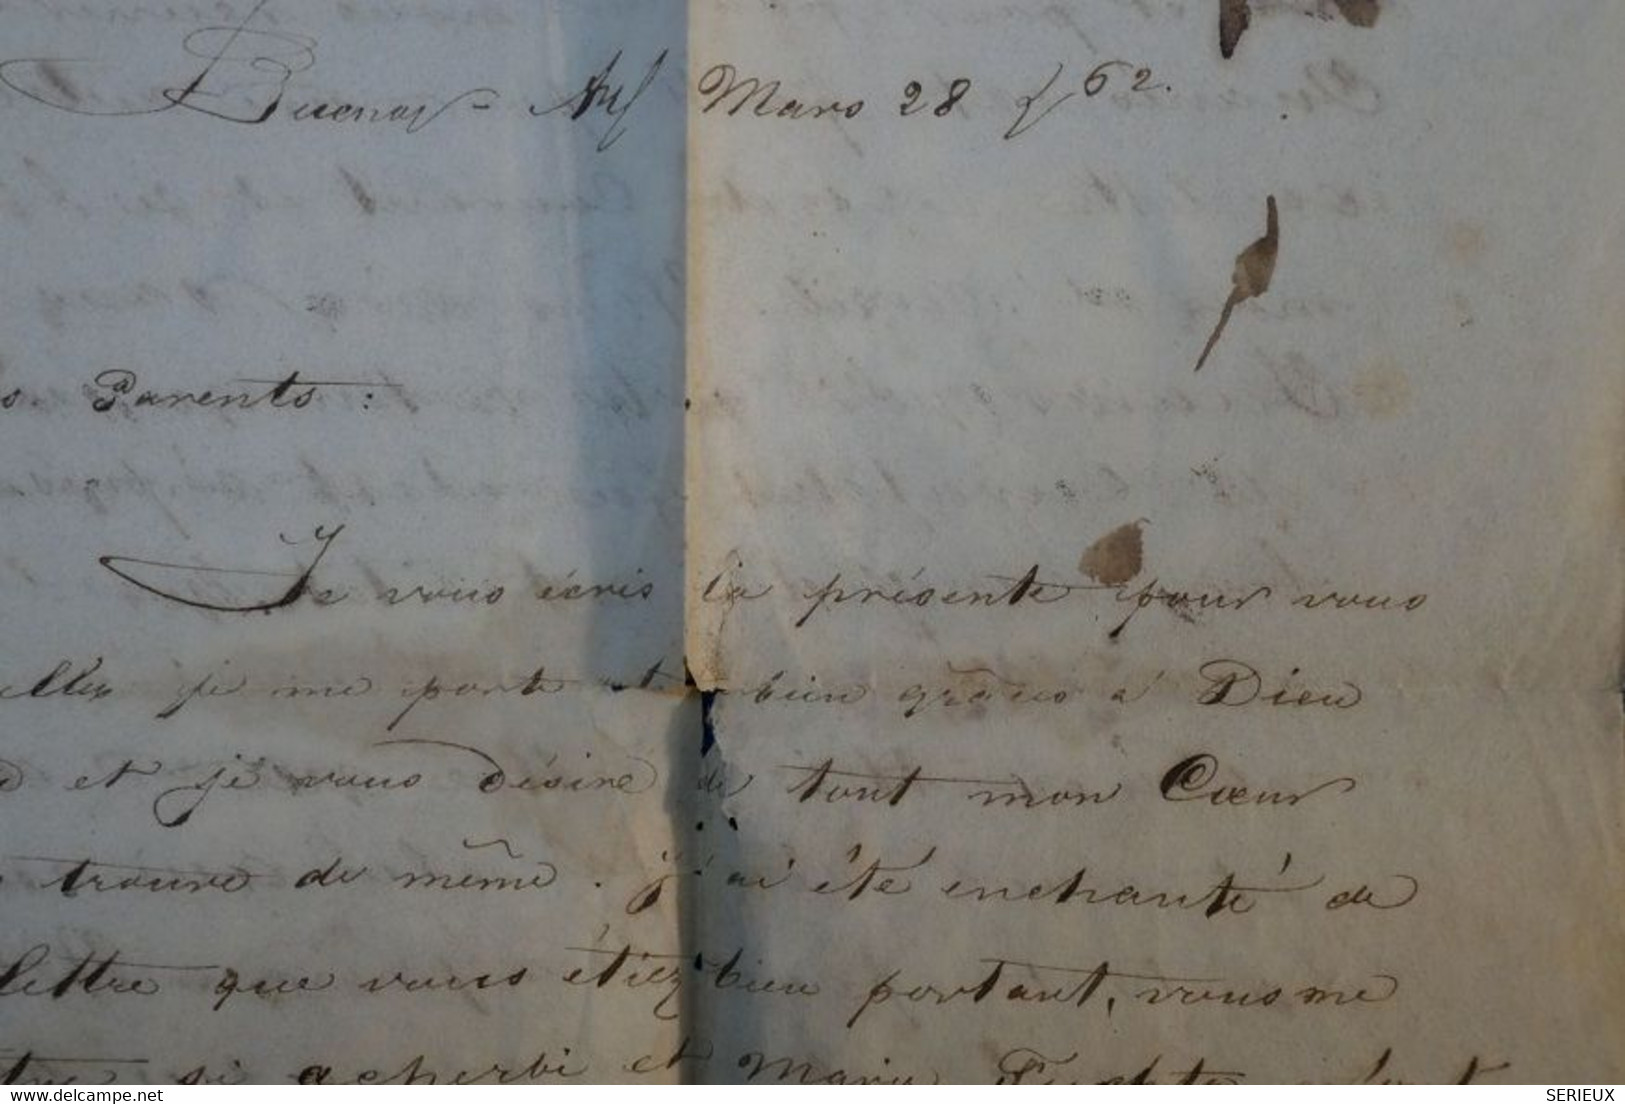 Buenos - Mars 28 / 62.
s Parents :
Je vous écris la présente pour vous
je me porte bien grâces à Dieu
et je vous désire de tout mon Cœur
trouve de même. j'ai été enchanté de
lettre que vous étiez bien portant, vous me
si acherbi et Marie
SERIEUX